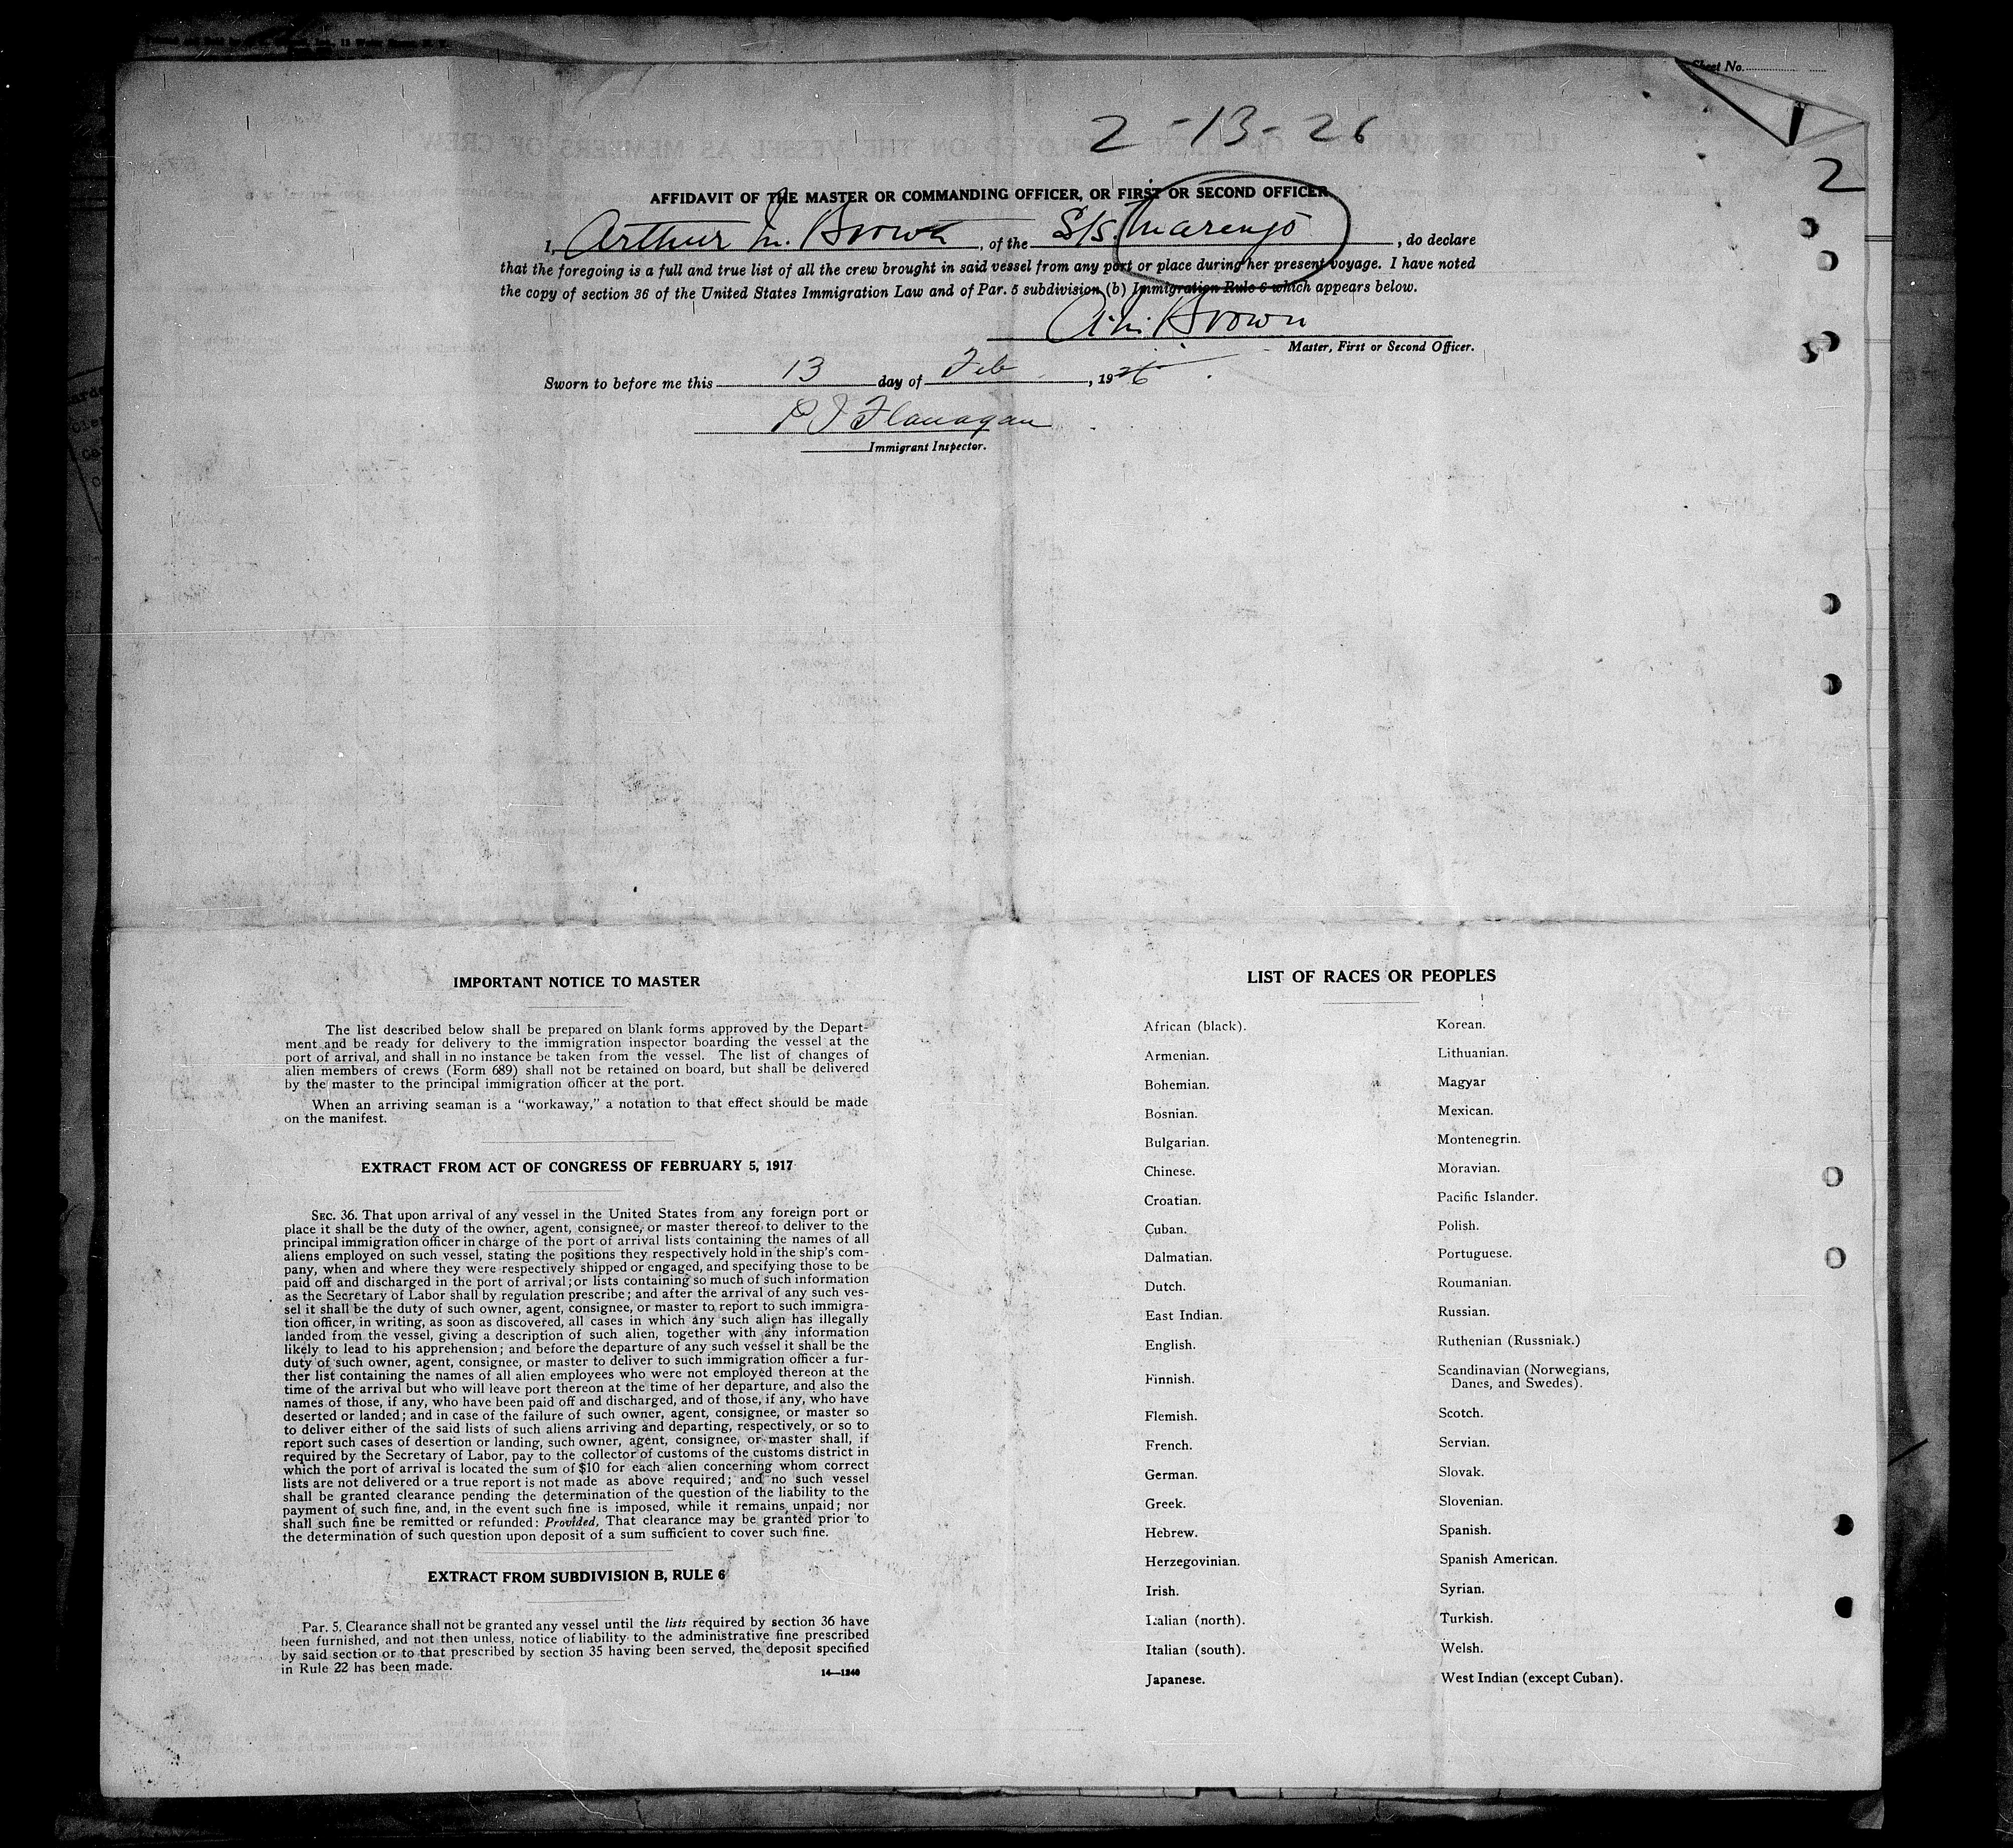 Sheet No.
2-13-26
2
AFFIDAVIT OF THE MASTER OR COMMANDING OFFICER, OR FIRST OR SECOND OFFICER
I, Arthur M. Brown, of the S/S. Marengo, do declare
that the foregoing is a full and true list of all the crew brought in said vessel from any port or place during her present voyage. I have noted
the copy of section 36 of the United States Immigration Law and of Par. 5 subdivision (b) Immigration Rule 6 which appears below.
A. M. Brown
Master, First or Second Officer.
Sworn to before me this 13 day of Feb, 1926
P J Flanagan
Immigrant Inspector.
IMPORTANT NOTICE TO MASTER
The list described below shall be prepared on blank forms approved by the Depart-
ment and be ready for delivery to the immigration inspector boarding the vessel at the
port of arrival, and shall in no instance be taken from the vessel. The list of changes of
alien members of crews (Form 689) shall not be retained on board, but shall be delivered
by the master to the principal immigration officer at the port.
When an arriving seaman is a "workaway," a notation to that effect should be made
on the manifest.
EXTRACT FROM ACT OF CONGRESS OF FEBRUARY 5, 1917
SEC. 36. That upon arrival of any vessel in the United States from any foreign port or
place it shall be the duty of the owner, agent, consignee, or master thereof to deliver to the
principal immigration officer in charge of the port of arrival lists containing the names of all
aliens employed on such vessel, stating the positions they respectively hold in the ship's com-
pany, when and where they were respectively shipped or engaged, and specifying those to be
paid off and discharged in the port of arrival; or lists containing so much of such information
as the Secretary of Labor shall by regulation prescribe; and after the arrival of any such ves-
sel it shall be the duty of such owner, agent, consignee, or master to report to such immigra-
tion officer, in writing, as soon as discovered, all cases in which any such alien has illegally
landed from the vessel, giving a description of such alien, together with any information
likely to lead to his apprehension; and before the departure of any such vessel it shall be the
duty of such owner, agent, consignee, or master to deliver to such immigration officer a fur-
ther list containing the names of all alien employees who were not employed thereon at the
time of the arrival but who will leave port thereon at the time of her departure, and also the
names of those, if any, who have been paid off and discharged, and of those, if any, who have
deserted or landed; and in case of the failure of such owner, agent, consignee, or master so
to deliver either of the said lists of such aliens arriving and departing, respectively, or so to
report such cases of desertion or landing, such owner, agent, consignee, or master shall, if
required by the Secretary of Labor, pay to the collector of customs of the customs district in
which the port of arrival is located the sum of $10 for each alien concerning whom correct
lists are not delivered or a true report is not made as above required; and no such vessel
shall be granted clearance pending the determination of the question of the liability to the
payment of such fine, and, in the event such fine is imposed, while it remains unpaid; nor
shall such fine be remitted or refunded: Provided, That clearance may be granted prior to
the determination of such question upon deposit of a sum sufficient to cover such fine.
EXTRACT FROM SUBDIVISION B, RULE 6
Par. 5. Clearance shall not be granted any vessel until the lists required by section 36 have
been furnished, and not then unless, notice of liability to the administrative fine prescribed
by said section or to that prescribed by section 35 having been served, the deposit specified
in Rule 22 has been made.
14—1240
LIST OF RACES OR PEOPLES
African (black).
Armenian.
Bohemian.
Bosnian.
Bulgarian.
Chinese.
Croatian.
Cuban.
Dalmatian.
Dutch.
East Indian.
English.
Finnish.
Flemish.
French.
German.
Greek.
Hebrew.
Herzegovinian.
Irish.
Italian (north).
Italian (south).
Japanese.
Korean.
Lithuanian.
Magyar
Mexican.
Montenegrin.
Moravian.
Pacific Islander.
Polish.
Portuguese.
Roumanian.
Russian.
Ruthenian (Russniak.)
Scandinavian (Norwegians,
Danes, and Swedes).
Scotch.
Servian.
Slovak.
Slovenian.
Spanish.
Spanish American.
Syrian.
Turkish.
Welsh.
West Indian (except Cuban).